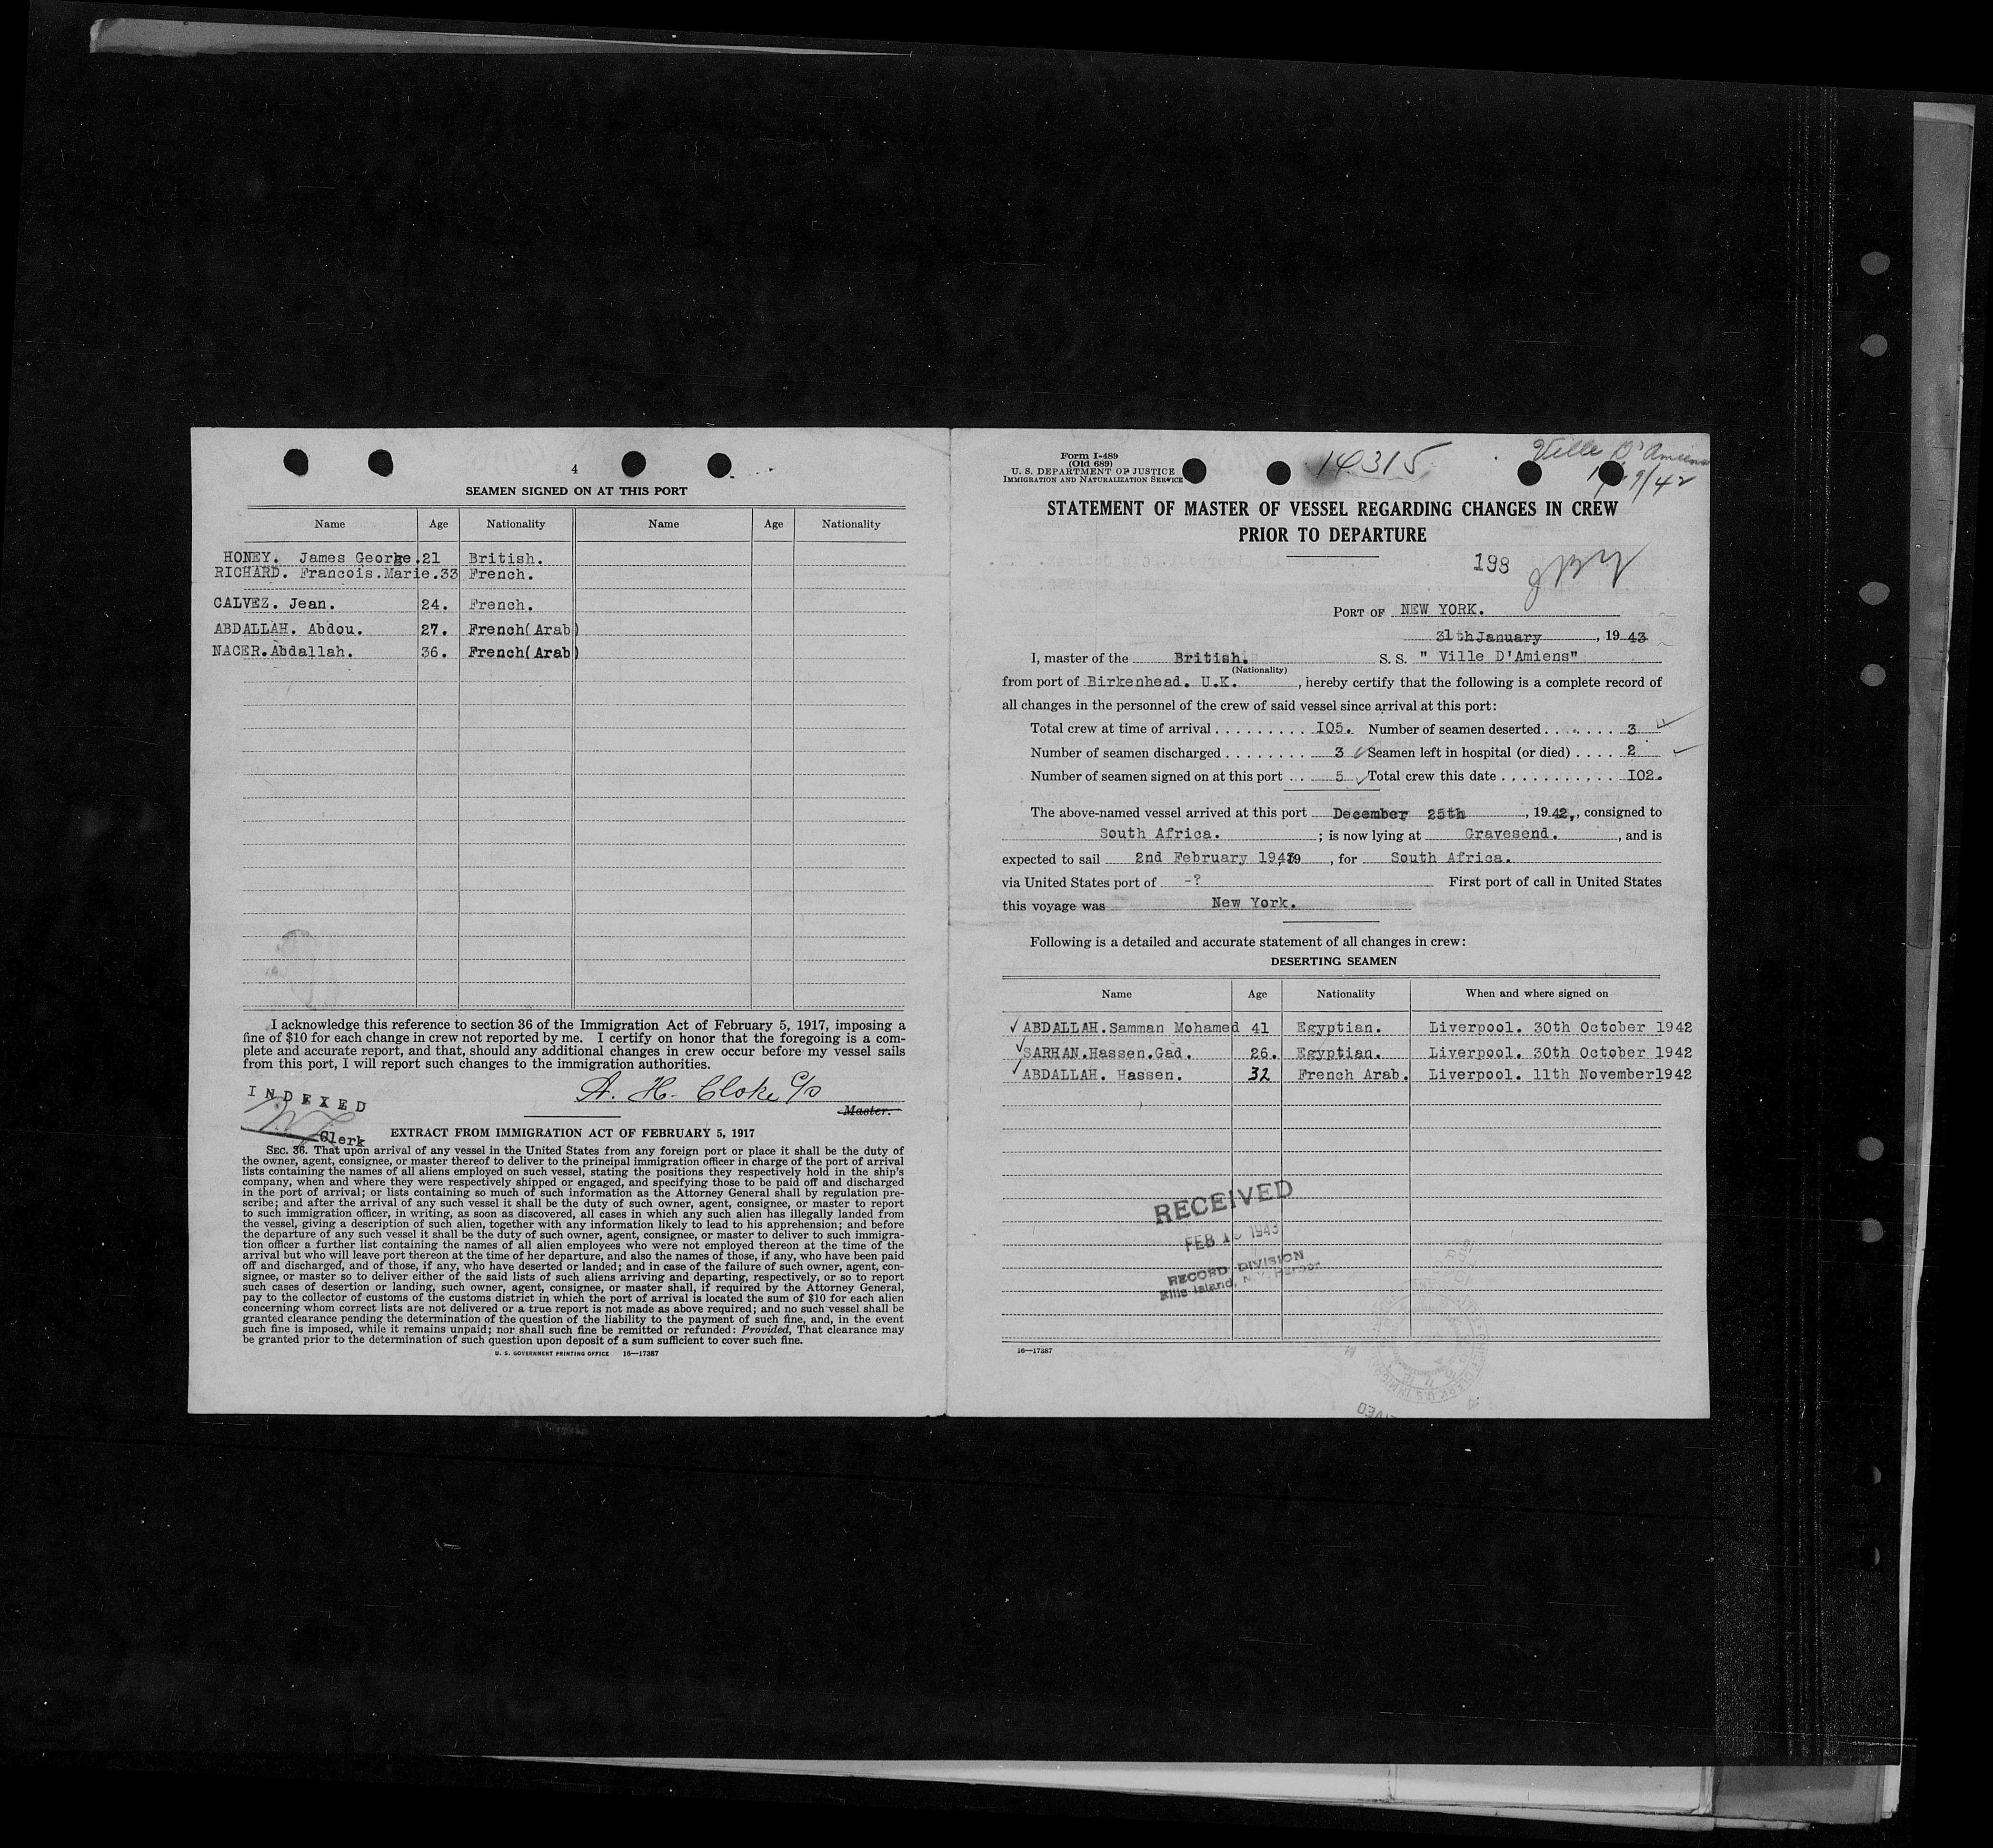 4
SEAMEN SIGNED ON AT THIS PORT
Name Age Nationality Name Age Nationality
HONEY. James George. 21 British.
RICHARD. Francois.Marie. 33 French.
CALVEZ. Jean. 24. French.
ABDALLAH. Abdou. 27. French(Arab)
NACER.Abdallah. 36. French(Arab)
I acknowledge this reference to section 36 of the Immigration Act of February 5, 1917, imposing a
fine of $10 for each change in crew not reported by me. I certify on honor that the foregoing is a com-
plete and accurate report, and that, should any additional changes in crew occur before my vessel sails
from this port, I will report such changes to the immigration authorities.
A. H. Cloke c/o
Master.
INDEXED
Clerk
EXTRACT FROM IMMIGRATION ACT OF FEBRUARY 5, 1917
SEC. 36. That upon arrival of any vessel in the United States from any foreign port or place it shall be the duty of
the owner, agent, consignee, or master thereof to deliver to the principal immigration officer in charge of the port of arrival
lists containing the names of all aliens employed on such vessel, stating the positions they respectively hold in the ship's
company, when and where they were respectively shipped or engaged, and specifying those to be paid off and discharged
in the port of arrival; or lists containing so much of such information as the Attorney General shall by regulation pre-
scribe; and after the arrival of any such vessel it shall be the duty of such owner, agent, consignee, or master to report
to such immigration officer, in writing, as soon as discovered, all cases in which any such alien has illegally landed from
the vessel, giving a description of such alien, together with any information likely to lead to his apprehension; and before
the departure of any such vessel it shall be the duty of such owner, agent, consignee, or master to deliver to such immigra-
tion officer a further list containing the names of all alien employees who were not employed thereon at the time of the
arrival but who will leave port thereon at the time of her departure, and also the names of those, if any, who have been paid
off and discharged, and of those, if any, who have deserted or landed; and in case of the failure of such owner, agent, con-
signee, or master so to deliver either of the said lists of such aliens arriving and departing, respectively, or so to report
such cases of desertion or landing, such owner, agent, consignee, or master shall, if required by the Attorney General,
pay to the collector of customs of the customs district in which the port of arrival is located the sum of $10 for each alien
concerning whom correct lists are not delivered or a true report is not made as above required; and no such vessel shall be
granted clearance pending the determination of the question of the liability to the payment of such fine, and, in the event
such fine is imposed, while it remains unpaid; nor shall such fine be remitted or refunded: Provided, That clearance may
be granted prior to the determination of such question upon deposit of a sum sufficient to cover such fine.
U. S. GOVERNMENT PRINTING OFFICE 16—17387
Form I-489
(Old 689)
U. S. DEPARTMENT OF JUSTICE
IMMIGRATION AND NATURALIZATION SERVICE
14315
Ville D'Amiens
STATEMENT OF MASTER OF VESSEL REGARDING CHANGES IN CREW
PRIOR TO DEPARTURE
198
PORT OF NEW YORK.
31th January, 1943
I, master of the British. S. S. " Ville D'Amiens"
(Nationality)
from port of Birkenhead. U.K. , hereby certify that the following is a complete record of
all changes in the personnel of the crew of said vessel since arrival at this port:
Total crew at time of arrival . . . . . . . . . I05. Number of seamen deserted . . . . . . . 3
Number of seamen discharged . . . . . . . . 3 Seamen left in hospital (or died) . . . . 2
Number of seamen signed on at this port . . . 5 Total crew this date . . . . . . . . . . . I02.
The above-named vessel arrived at this port December 25th , 1942, , consigned to
South Africa. ; is now lying at Gravesend. , and is
expected to sail 2nd February 1943, 19 , for South Africa.
via United States port of -? First port of call in United States
this voyage was New York.
Following is a detailed and accurate statement of all changes in crew:
DESERTING SEAMEN
Name Age Nationality When and where signed on
✓ ABDALLAH.Samman Mohamed 41 Egyptian. Liverpool. 30th October 1942
✓ SARHAN.Hassen.Gad. 26. Egyptian. Liverpool. 30th October 1942
✓ ABDALLAH. Hassen. 32 French Arab. Liverpool. 11th November1942
RECEIVED
FEB 1943
RECORD DIVISION
Ellis Island, N.Y. Harbor
16—17387